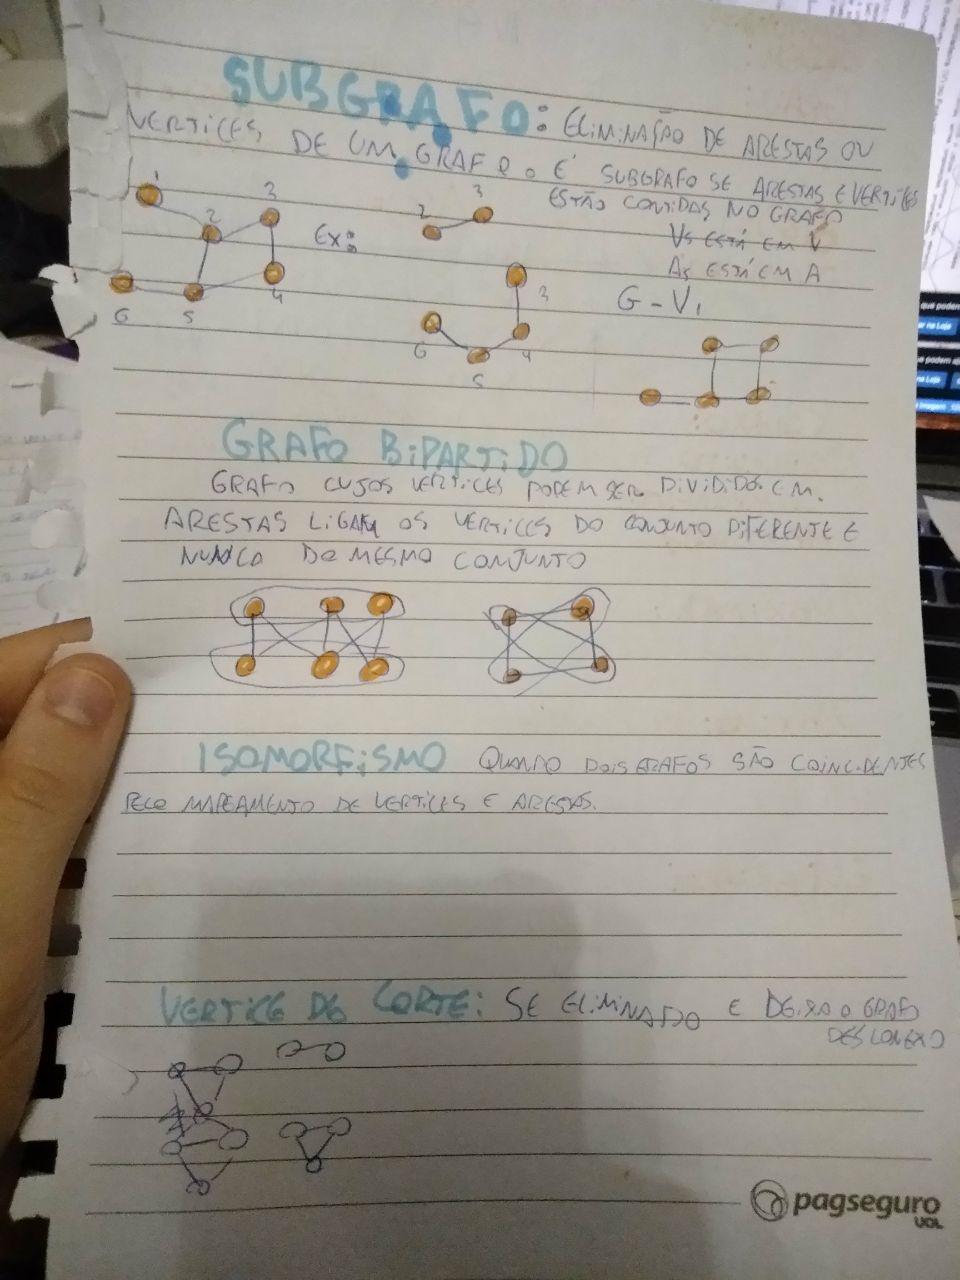 SUBGRAFO: ELIMINAÇÃO DE ARESTAS OU
VERTICES DE UM GRAFO. É SUBGRAFO SE ARESTAS E VERTICES
ESTÃO CONTIDAS NO GRAFO
Vs ESTÁ EM V
As ESTÁ EM A
1
2
3
4
5
6
Ex:
2
3
3
4
5
6
G - V1
GRAFO BIPARTIDO
GRAFO CUJOS VERTICES PODEM SER DIVIDIDOS EM.
ARESTAS LIGAM OS VERTICES DO CONJUNTO DIFERENTE E
NUNCA DO MESMO CONJUNTO
ISOMORFISMO QUANDO DOIS GRAFOS SÃO COINCIDENTES
PELO MAPEAMENTO DE VERTICES E ARESTAS.
VERTICE DE CORTE: SE ELIMINADO E DEIXA O GRAFO
DESCONEXO
pagseguro
UOL